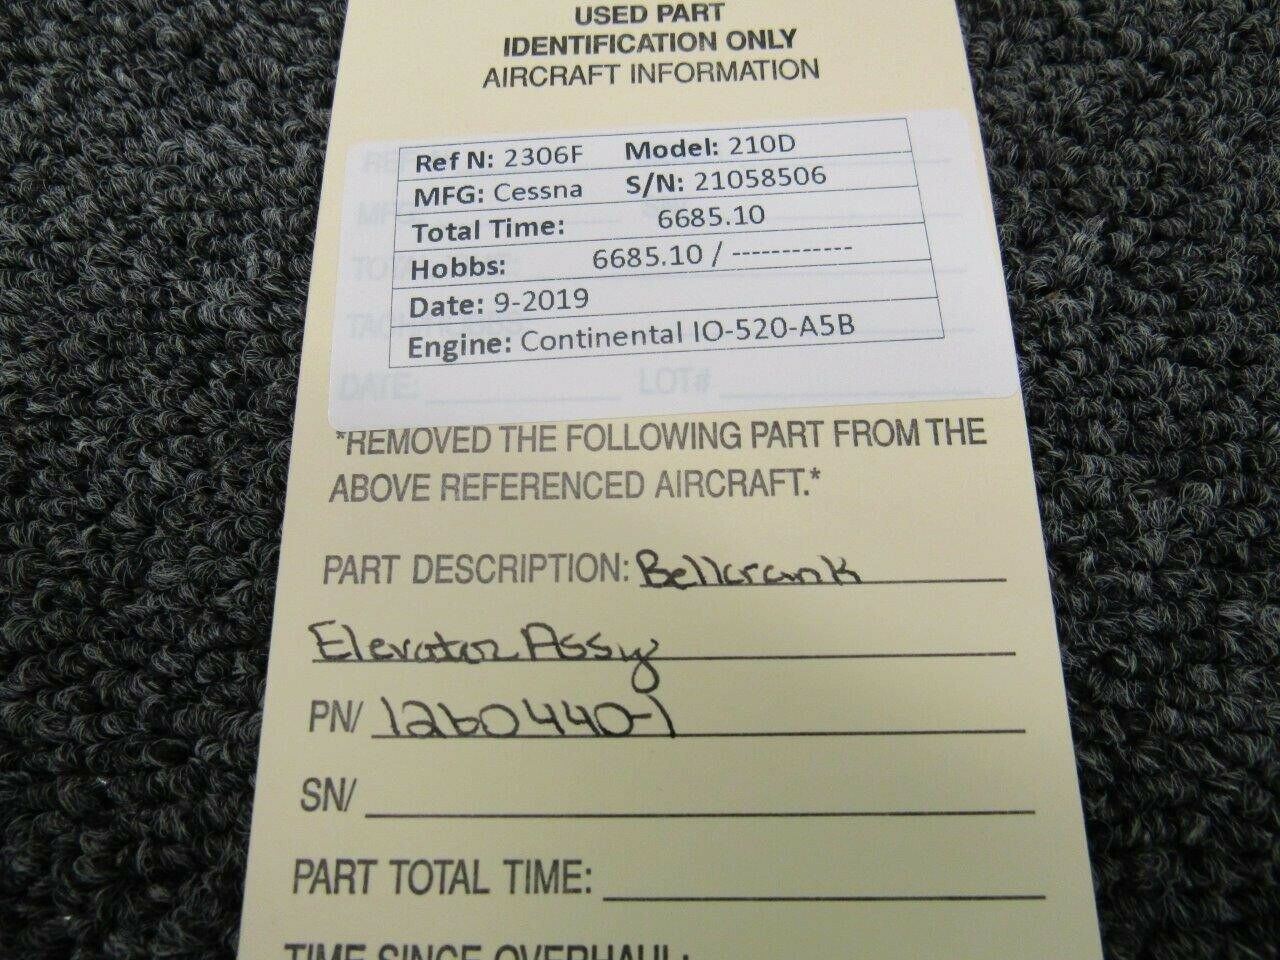 USED PART
IDENTIFICATION ONLY
AIRCRAFT INFORMATION
Ref N: 2306F Model: 210D
MFG: Cessna S/N: 21058506
Total Time: 6685.10
Hobbs: 6685.10 / ------------
Date: 9-2019
Engine: Continental IO-520-A5B
DATE: LOT#
*REMOVED THE FOLLOWING PART FROM THE
ABOVE REFERENCED AIRCRAFT.*
PART DESCRIPTION: Bellcrank
Elevator Assy
PN/ 1260440-1
SN/
PART TOTAL TIME:
TIME SINCE OVERHAUL: